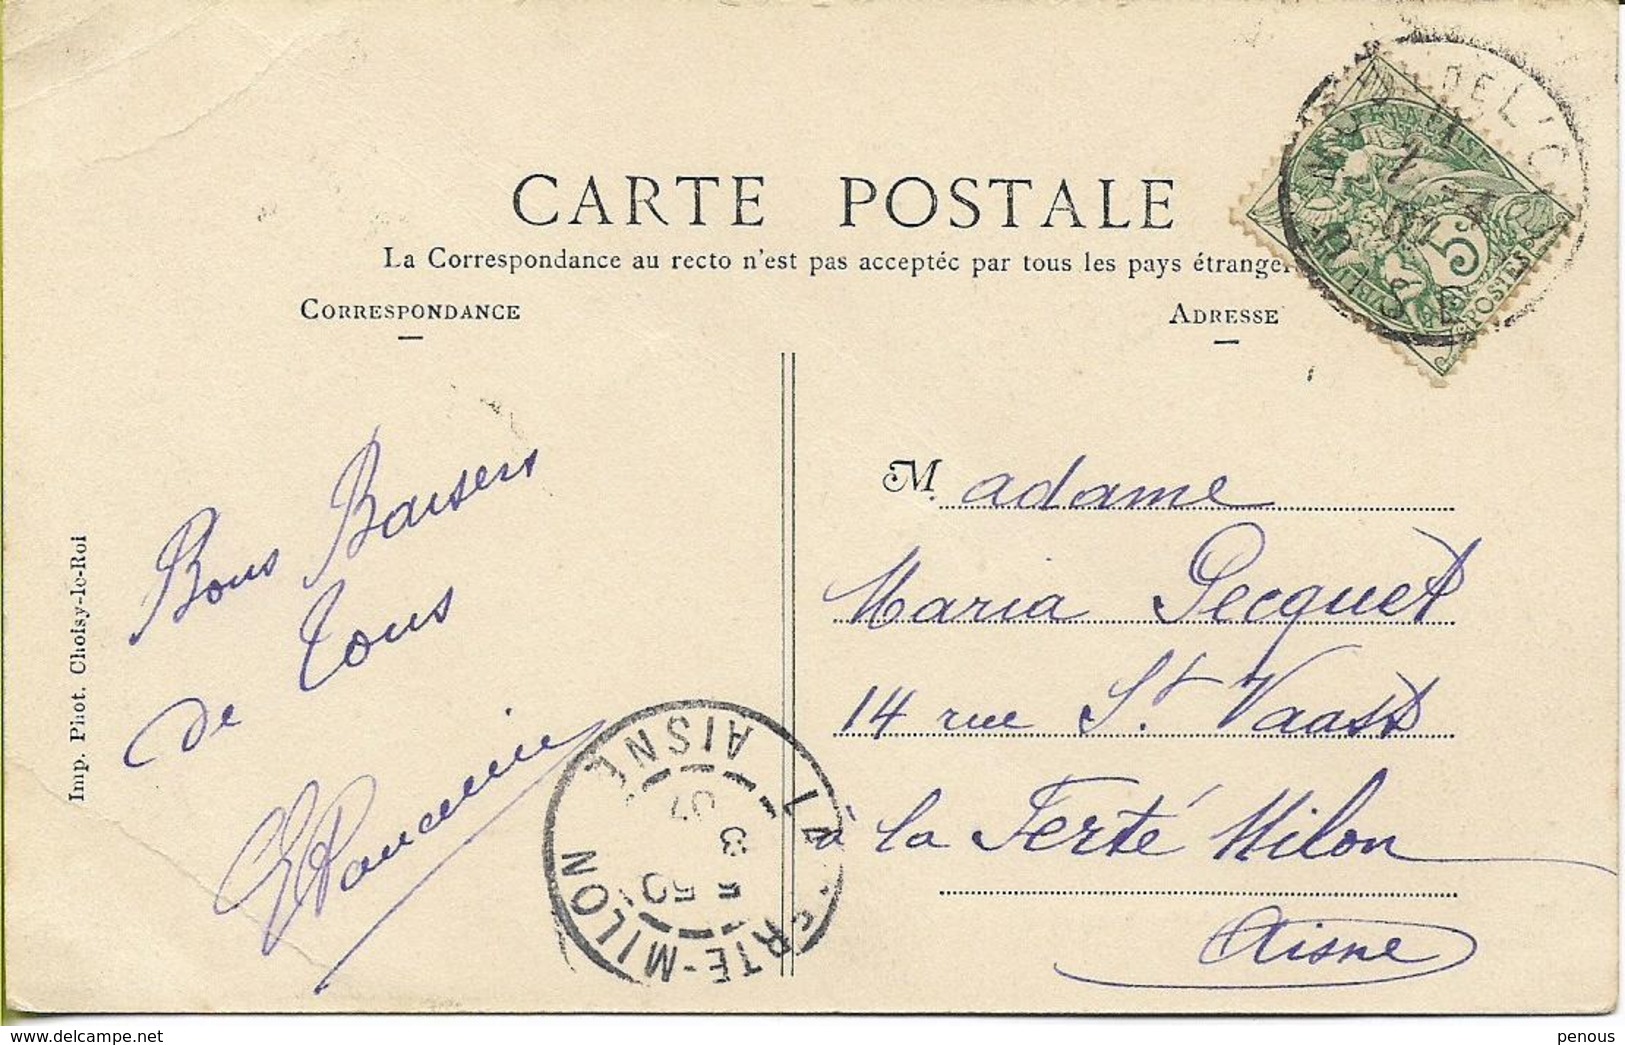 CARTE POSTALE
La Correspondance au recto n'est pas acceptée par tous les pays étrangers
CORRESPONDANCE
ADRESSE
Bons Baisers
de Tous
Madame
Maria Pecquet
14 rue St. Vaast
à la Ferté Milon
Aisne
Imp. Phot. Choisy-le-Roi
LA FERTE-MILON
AISNE
5
POSTES
penous